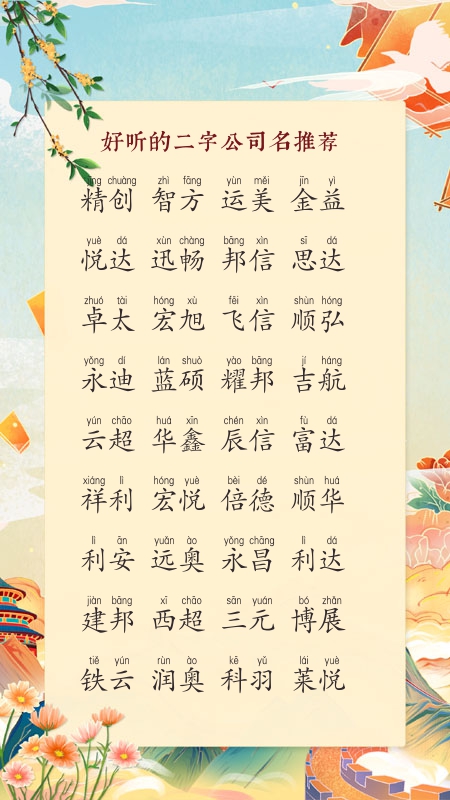 好听的二字公司名推荐
jīng chuàng zhì fāng yùn měi jīn yì
精创 智方 运美 金益
yuè dá xùn chàng bāng xìn sī dá
悦达 迅畅 邦信 思达
zhuó tài hóng xù fēi xìn shùn hóng
卓太 宏旭 飞信 顺弘
yǒng dí lán shuò yào bāng jí háng
永迪 蓝硕 耀邦 吉航
yún chāo huá xīn chén xìn fù dá
云超 华鑫 辰信 富达
xiáng lì hóng yuè bèi dé shùn huá
祥利 宏悦 倍德 顺华
lì ān yuǎn ào yǒng chāng lì dá
利安 远奥 永昌 利达
jiàn bāng xī chāo sān yuán bó zhǎn
建邦 西超 三元 博展
tiě yún rùn ào kē yǔ lái yuè
铁云 润奥 科羽 莱悦